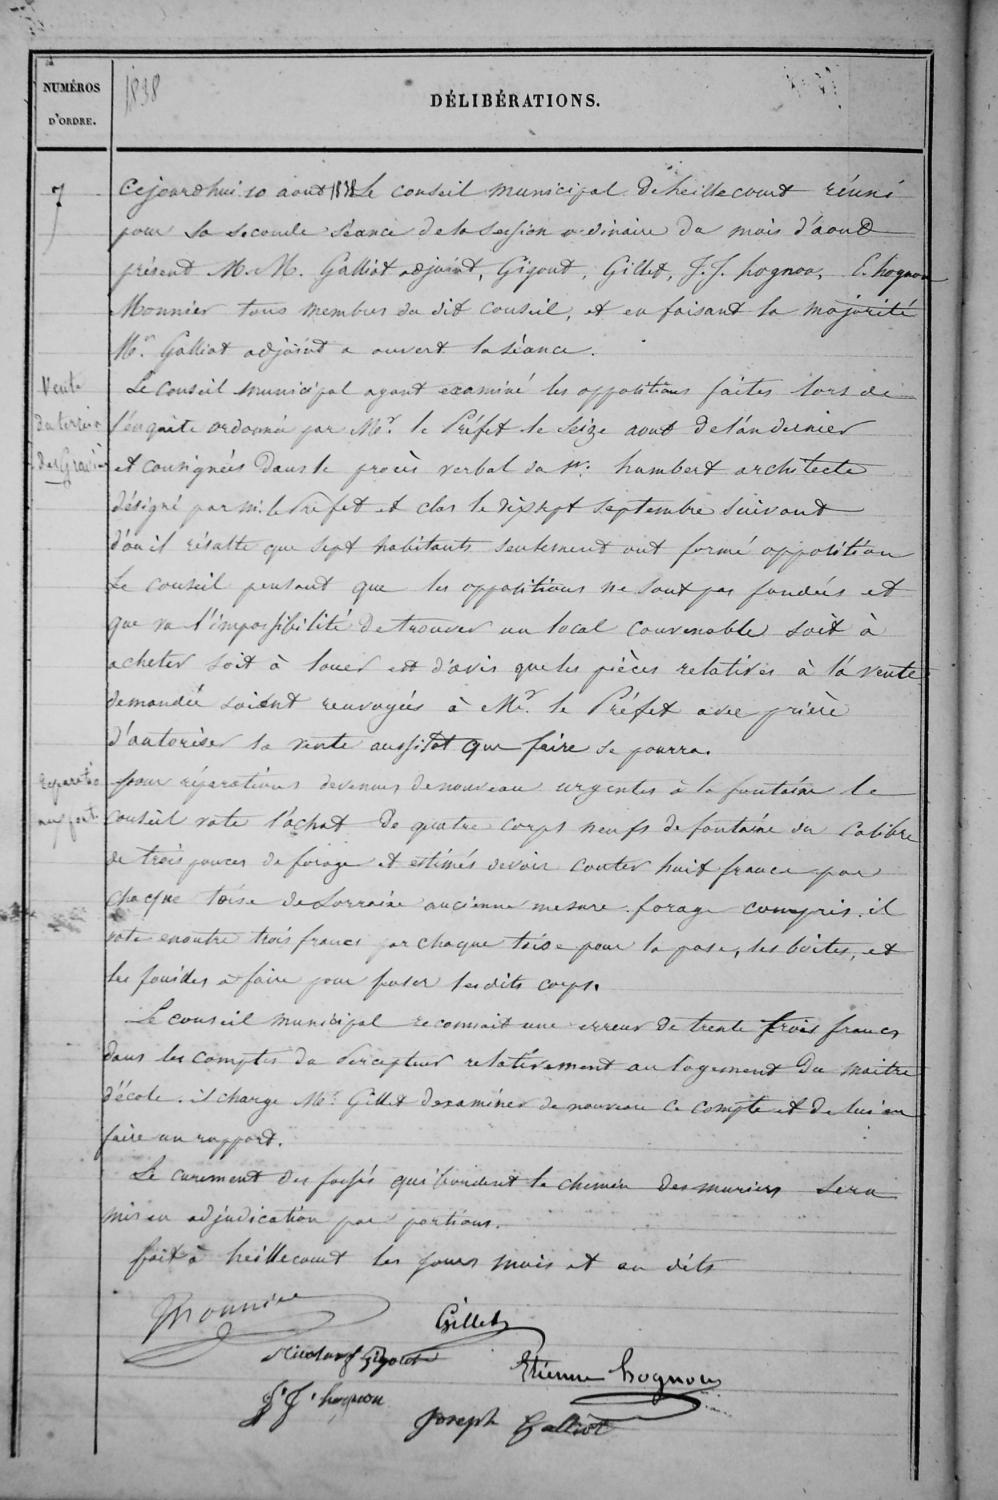 NUMÉROS
D'ORDRE.
1838
DÉLIBÉRATIONS.
7
Cejourdhui 10 aout 1838 Le conseil municipal de heillecourt réuni
pour sa seconde séance de la session ordinaire du mois d'aout
présent M.M. Galliot adjoint, Gigout, Gillet, J.J. hognon, E. hognon
Monnier tous membres du dit conseil, et en faisant la majorité
Mr. Galliot adjoint a ouvert la séance.
Vente
du terrain
des
Le conseil municipal ayant examiné les oppositions faites lors de
l'enquête ordonnée par Mr. le Préfet le seize aout de l'an dernier
et consignées dans le procès verbal du Sr. humbert architecte
désigné par mr le Préfet et clos le dixsept septembre suivant
d'où il résulte que sept habitants seulement ont formé opposition
Le conseil pensant que les oppositions ne sont pas fondées et
que vu l'impossibilité de trouver un local convenable soit à
acheter soit à louer est d'avis que les pièces relatives à la vente
demandée soient renvoyées à Mr. le Préfet avec prière
d'autoriser la vente aussitot que faire se pourra.
reparatio
aux font.
pour réparations devenues denouveau urgentes à la fontaine le
conseil vote l'achat de quatre corps neufs de fontaine du calibre
de trois pouces de forage et estimés devoir couter huit francs par
chaque toise de Lorraine ancienne mesure forage compris. il
vote enoutre trois francs par chaque toise pour la pose, les boites, et
les fouilles à faire pour poser lesdits corps.
Le conseil municipal reconnait une erreur de trente trois francs
dans les comptes du Percepteur relativement au logement du maitre
d'école. il charge Mr. Gillet d'examiner de nouveau ce compte et de lui en
faire un rapport.
Le curement des fossés qui bordent le chemin des muriers sera
mis en adjudication par portions.
fait à heillecourt les jours mois et an dits
Monnier
Gillet
Nicolas Gigout
Etienne hognon
J. J. hognon
Joseph Galliot